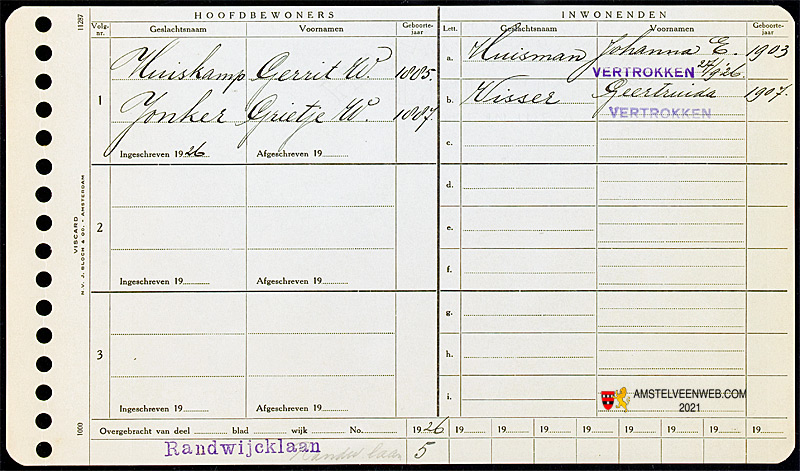 11287
HOOFDBEWONERS
INWONENDEN
Volg-nr. Geslachtsnaam Voornamen Geboorte-jaar
Lett. Geslachtsnaam Voornamen Geboorte-jaar
1
Huiskamp Gerrit W. 1885.
Jonker Grietje W. 1887.
Ingeschreven 1926 Afgeschreven 19
a. Huisman Johanna E. 1903
VERTROKKEN 27/9 '26.
b. Visser Geertruida 1907.
VERTROKKEN
c.
2
Ingeschreven 19 Afgeschreven 19
d.
e.
f.
3
Ingeschreven 19 Afgeschreven 19
g.
h.
i.
VISCARD
N.V. J. BLOCH & CO. - AMSTERDAM
1000
AMSTELVEENWEB.COM
2021
Overgebracht van deel blad wijk No. 1926 19 19 19 19 19 19 19 19
Randwijcklaan 5